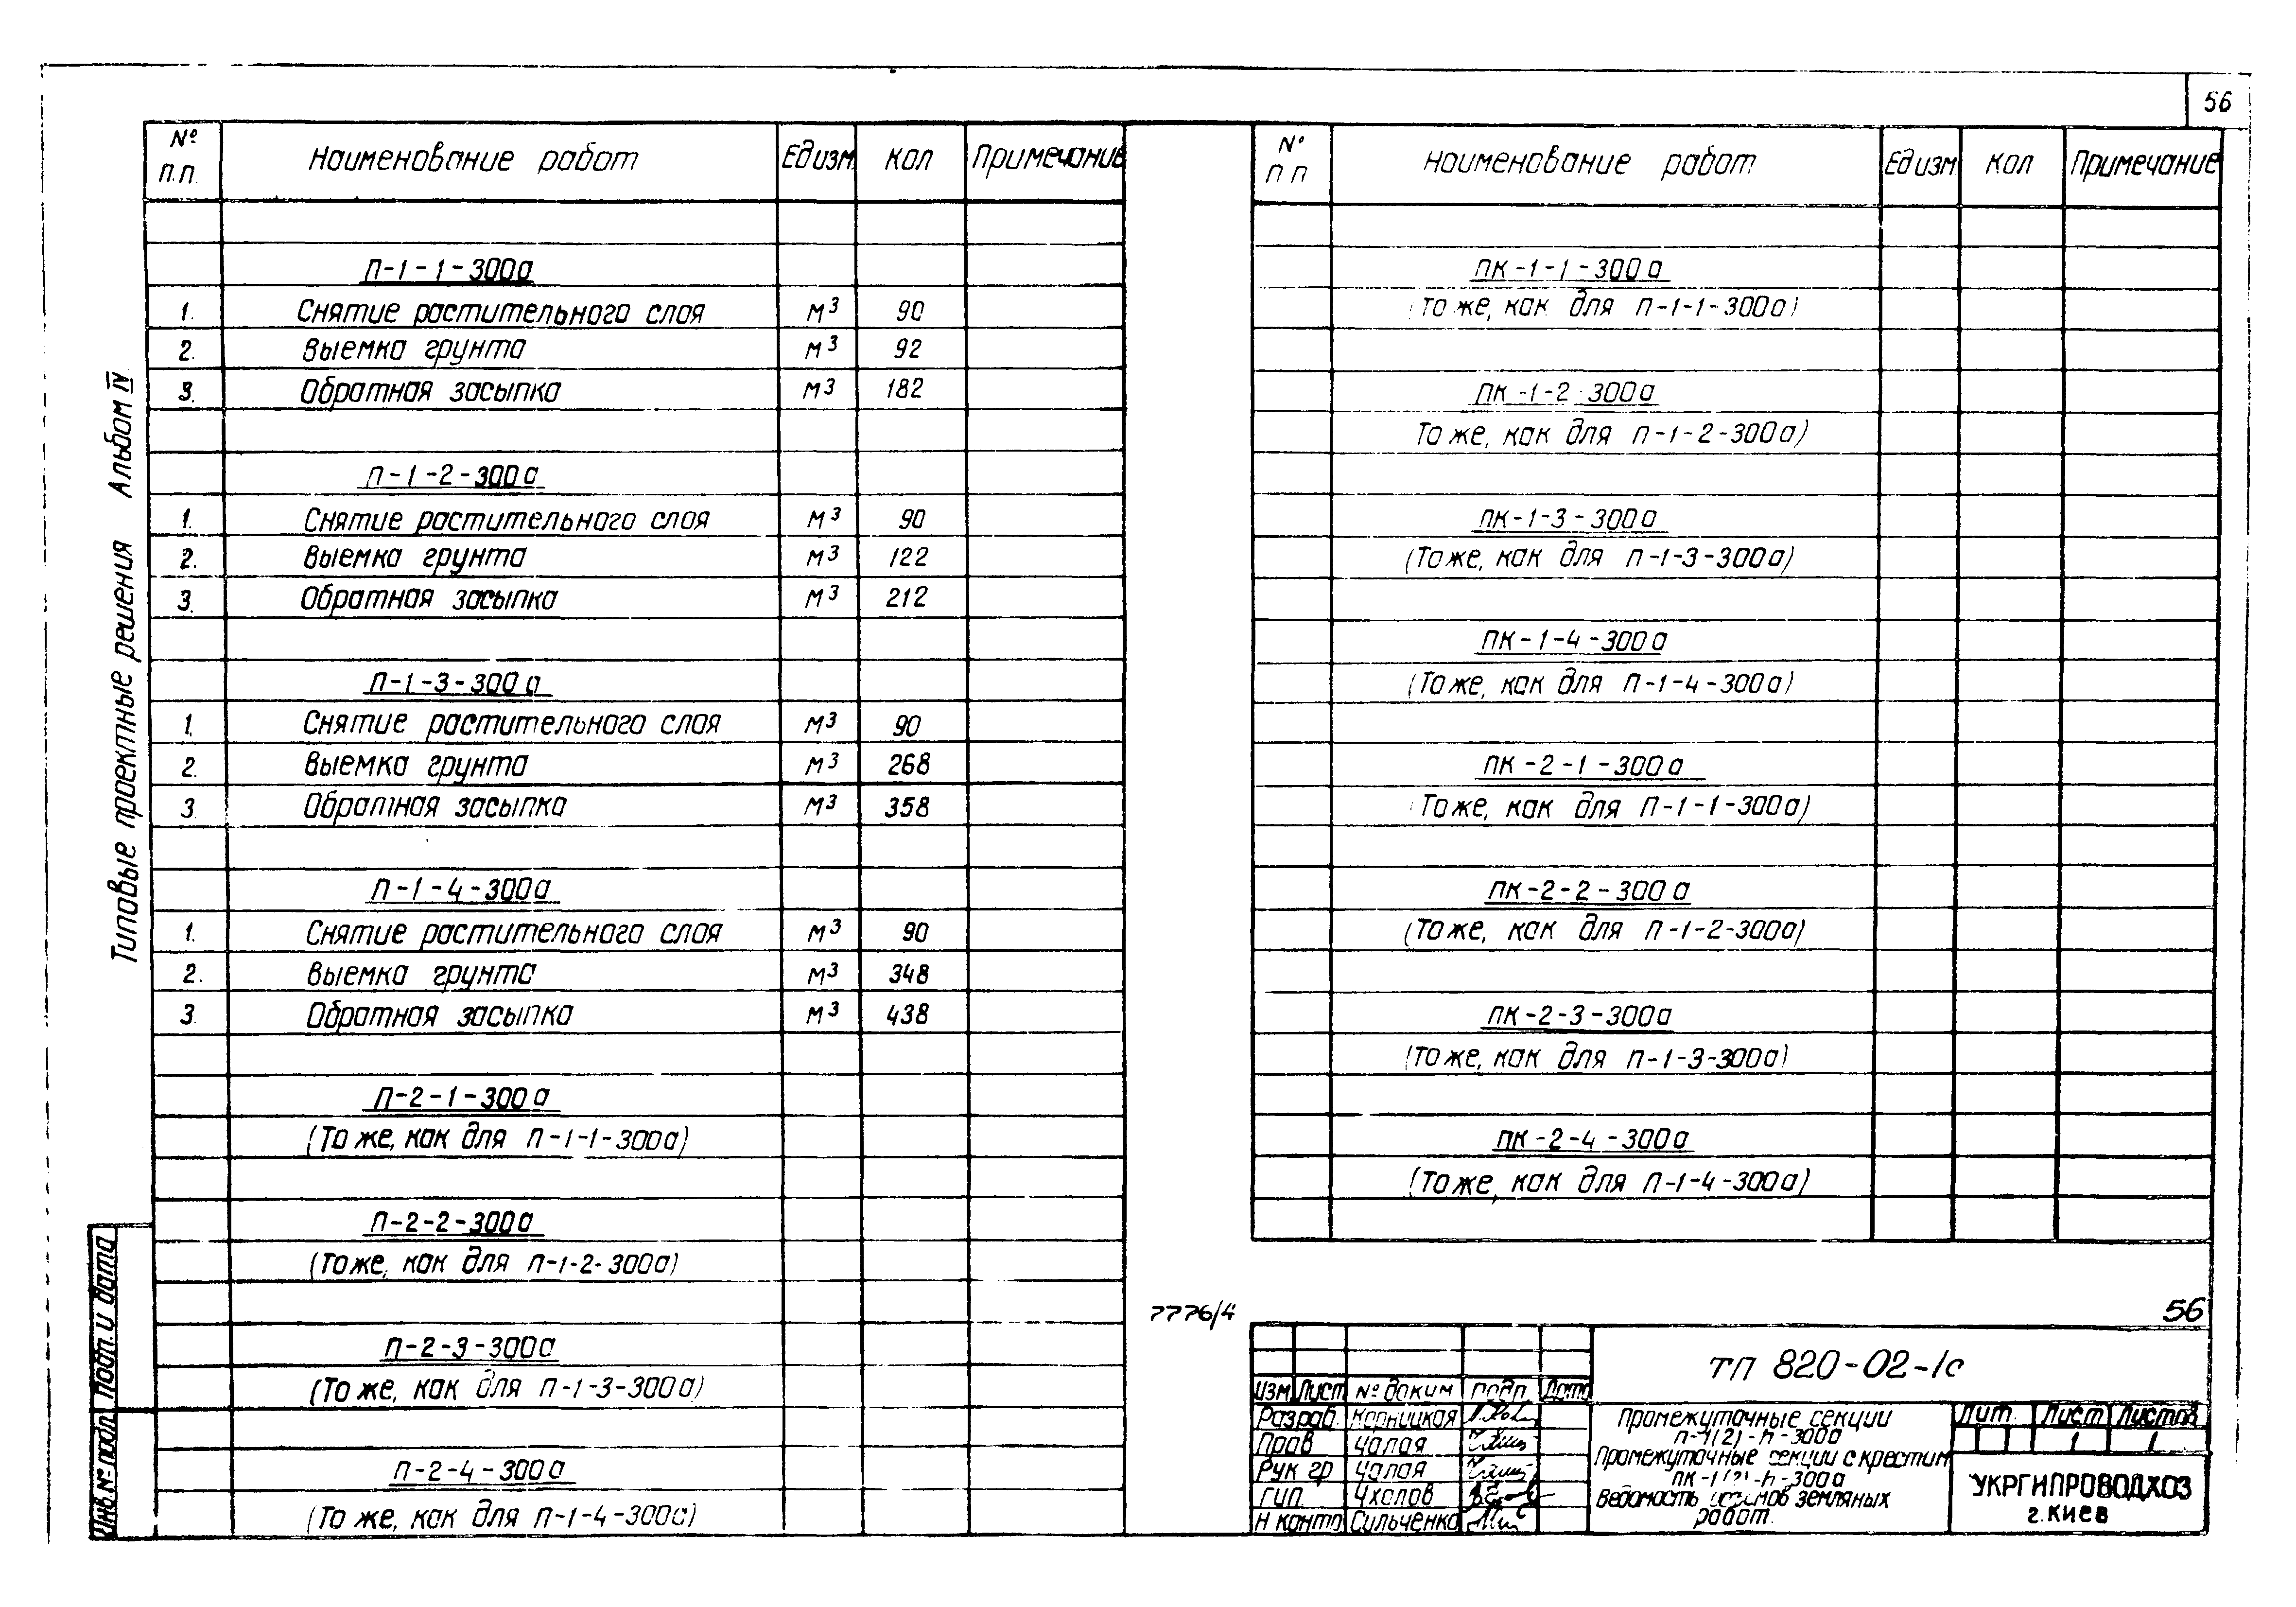 56
№ п.п. Наименование работ Ед изм. Кол Примечание
П-1-1-300а
1. Снятие растительного слоя м3 90
2. Выемка грунта м3 92
3. Обратная засыпка м3 182
П-1-2-300а
1. Снятие растительного слоя м3 90
2. Выемка грунта м3 122
3. Обратная засыпка м3 212
П-1-3-300а
1. Снятие растительного слоя м3 90
2. Выемка грунта м3 268
3. Обратная засыпка м3 358
П-1-4-300а
1. Снятие растительного слоя м3 90
2. Выемка грунта м3 348
3. Обратная засыпка м3 438
П-2-1-300а
(То же, как для П-1-1-300а)
П-2-2-300а
(То же, как для П-1-2-300а)
П-2-3-300а
(То же, как для П-1-3-300а)
П-2-4-300а
(То же, как для П-1-4-300а)
№ п п Наименование работ Ед изм Кол Примечание
ПК-1-1-300а
(То же, как для П-1-1-300а)
ПК-1-2-300а
То же, как для П-1-2-300а)
ПК-1-3-300а
(То же, как для П-1-3-300а)
ПК-1-4-300а
(То же, как для П-1-4-300а)
ПК-2-1-300а
(То же, как для П-1-1-300а)
ПК-2-2-300а
(То же, как для П-1-2-300а)
ПК-2-3-300а
(То же, как для П-1-3-300а)
ПК-2-4-300а
(То же, как для П-1-4-300а)
Типовые проектные решения Альбом IV
Инв. № подл. Подп. и дата
7776/4
56
ТП 820-02-1с
Изм Лист № доким подп Дата
Разраб. Корницкая
Пров Чалая
Рук гр Чалая
ГИП. Ухолов
Н контр Сильченко
Промежуточные секции
П-1(2)-h-300а
Промежуточные секции с крестин
ПК-1(2)-h-300а
Ведомость объемов земляных
работ.
Лит. Лист Листов
1 1
УКРГИПРОВОДХОЗ
г. Киев